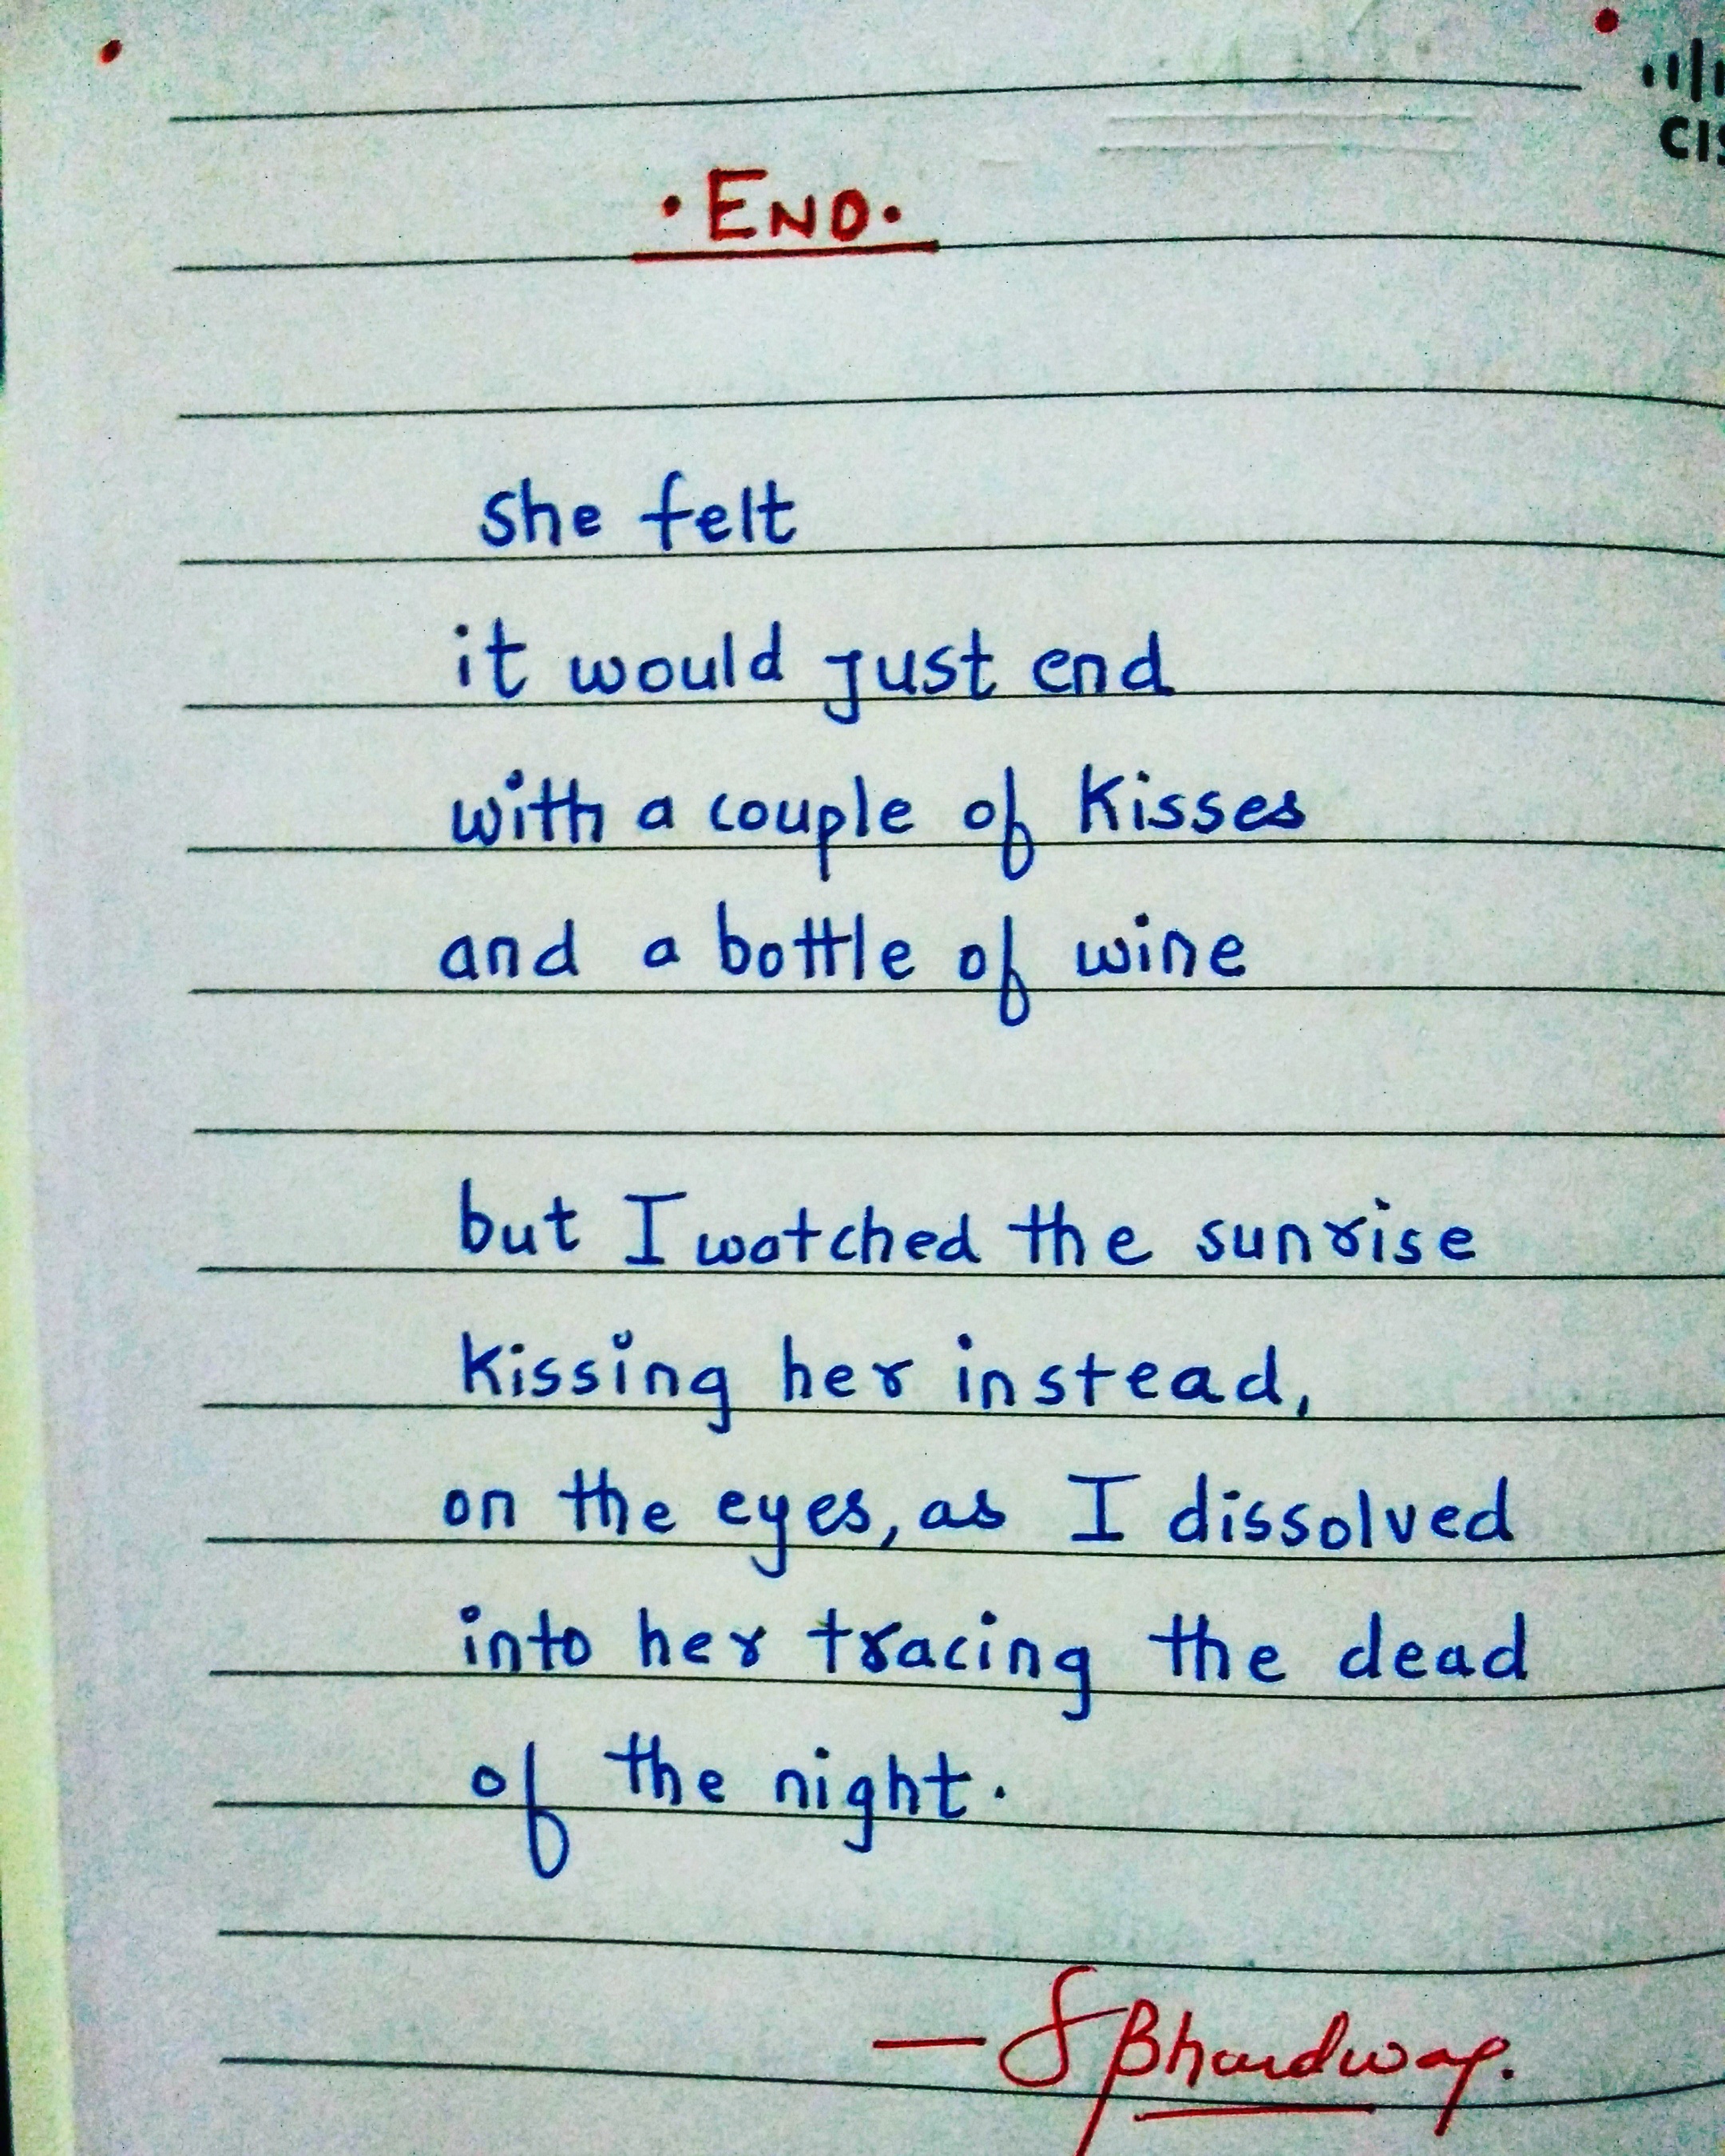 CIS
· END ·
she felt
it would just end
with a couple of kisses
and a bottle of wine
but I watched the sunrise
kissing her instead,
on the eyes, as I dissolved
into her tracing the dead
of the night.
— S Bhardwaj.